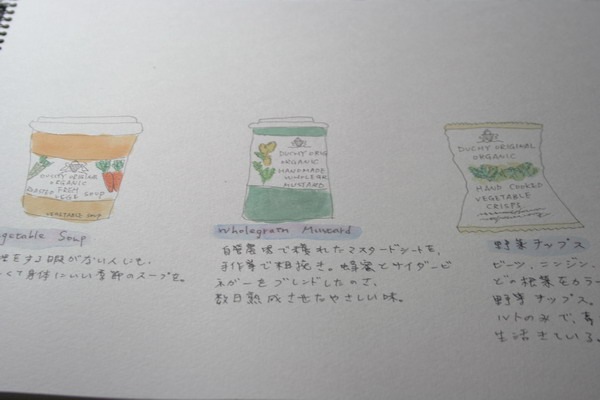 DUCHY ORIGINAL
ORGANIC
FRESH
SOUP
VEGETABLE SOUP
getable Soup
をする暇がない人にも、
くて身体にいい季節のスープを。
DUCHY ORIG
ORGANIC
HANDMADE
WHOLEGR
MUSTARD
Wholegrain Mustard
自営農場で穫れたマスタードシードを、
手作業で粗挽き。蜂蜜とサイダービ
ネガーをブレンドしたのち、
数日熟成させたやさしい味。
DUCHY ORIGINAL
ORGANIC
HAND COOKED
VEGETABLE
CRISPS
野菜チップス
ビーツ、ニンジン、
どの根菜をカラ
野菜チップス。
ルトのみで、素
生活きしている。